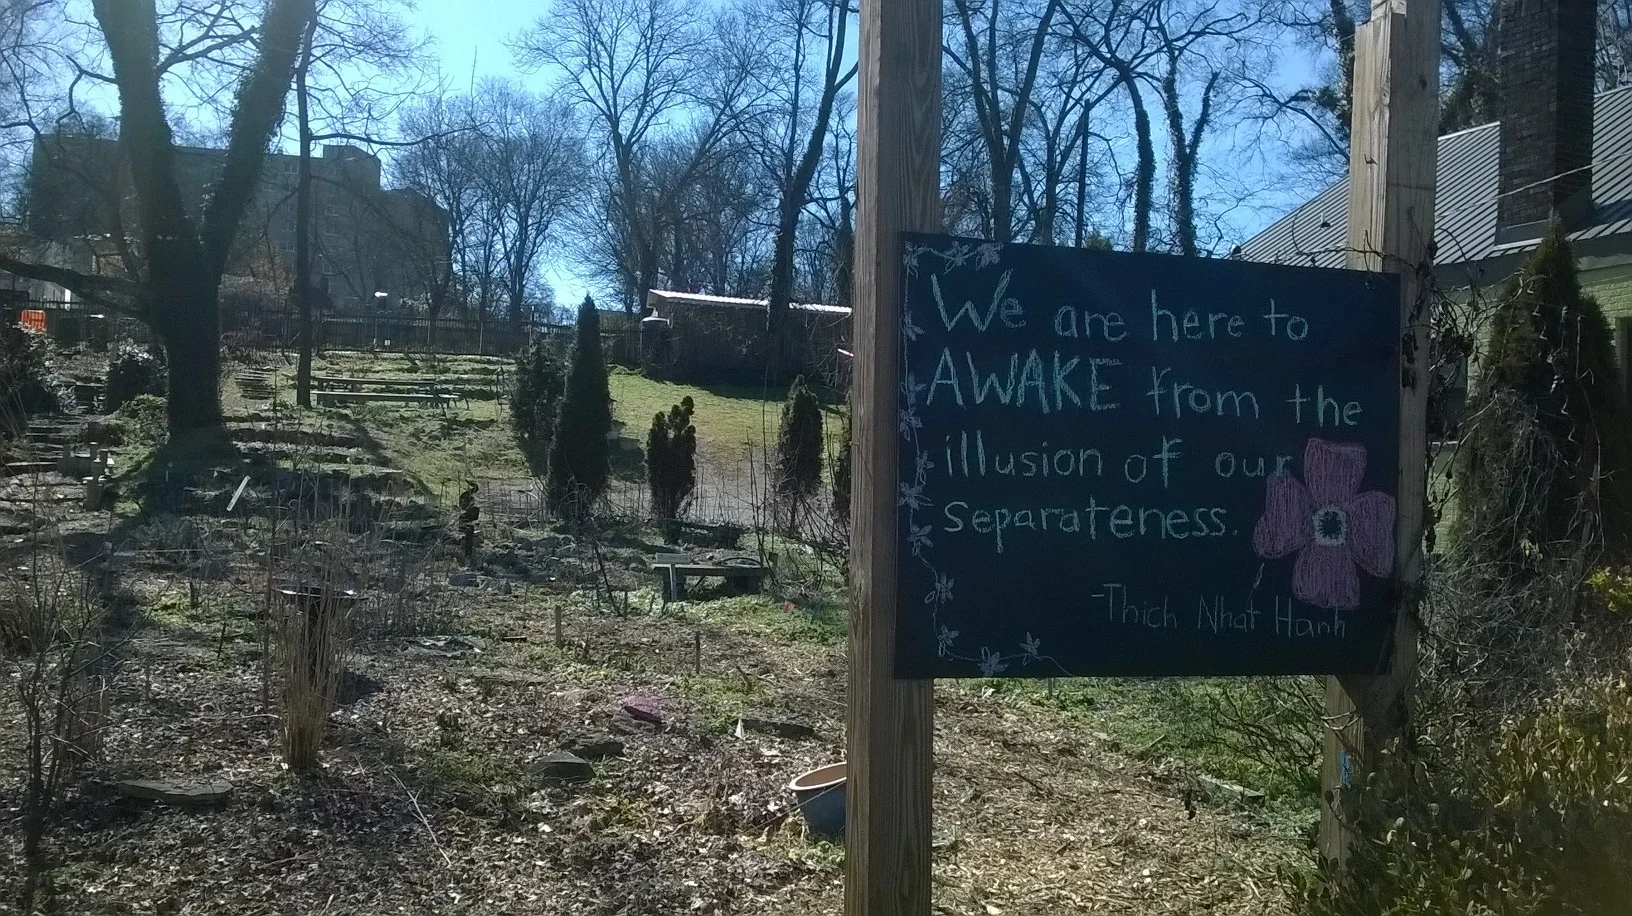 We are here to
AWAKE from the
illusion of our
separateness.
-Thich Nhat Hanh